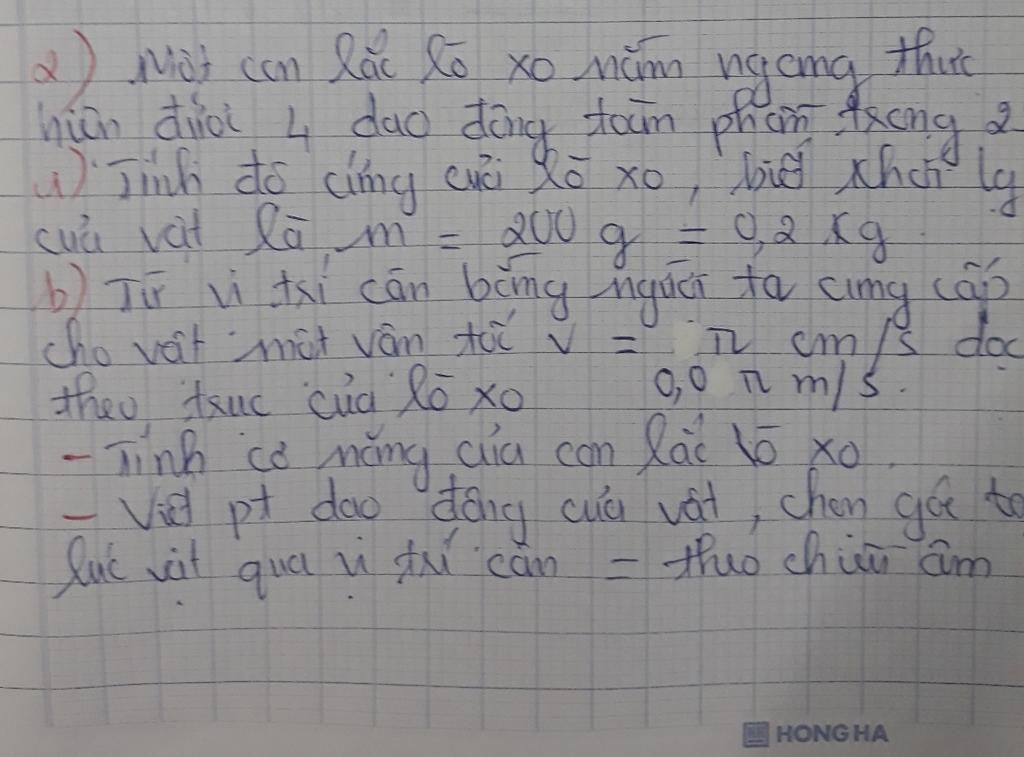 2) Một con lắc lò xo nằm ngang thực
hiện được 4 dao động toàn phần trong 2
a) Tính độ cứng của lò xo, biết khối lg
của vật là m = 200 g = 0,2 kg
b) Từ vị trí cân bằng người ta cung cấp
cho vật một vận tốc v = π cm/s dọc
theo trục của lò xo 0,0 π m/s.
- Tính cơ năng của con lắc lò xo.
- Viết pt dao động của vật, chọn gốc
lúc vật qua vị trí cân = theo chiều âm
HONG HA